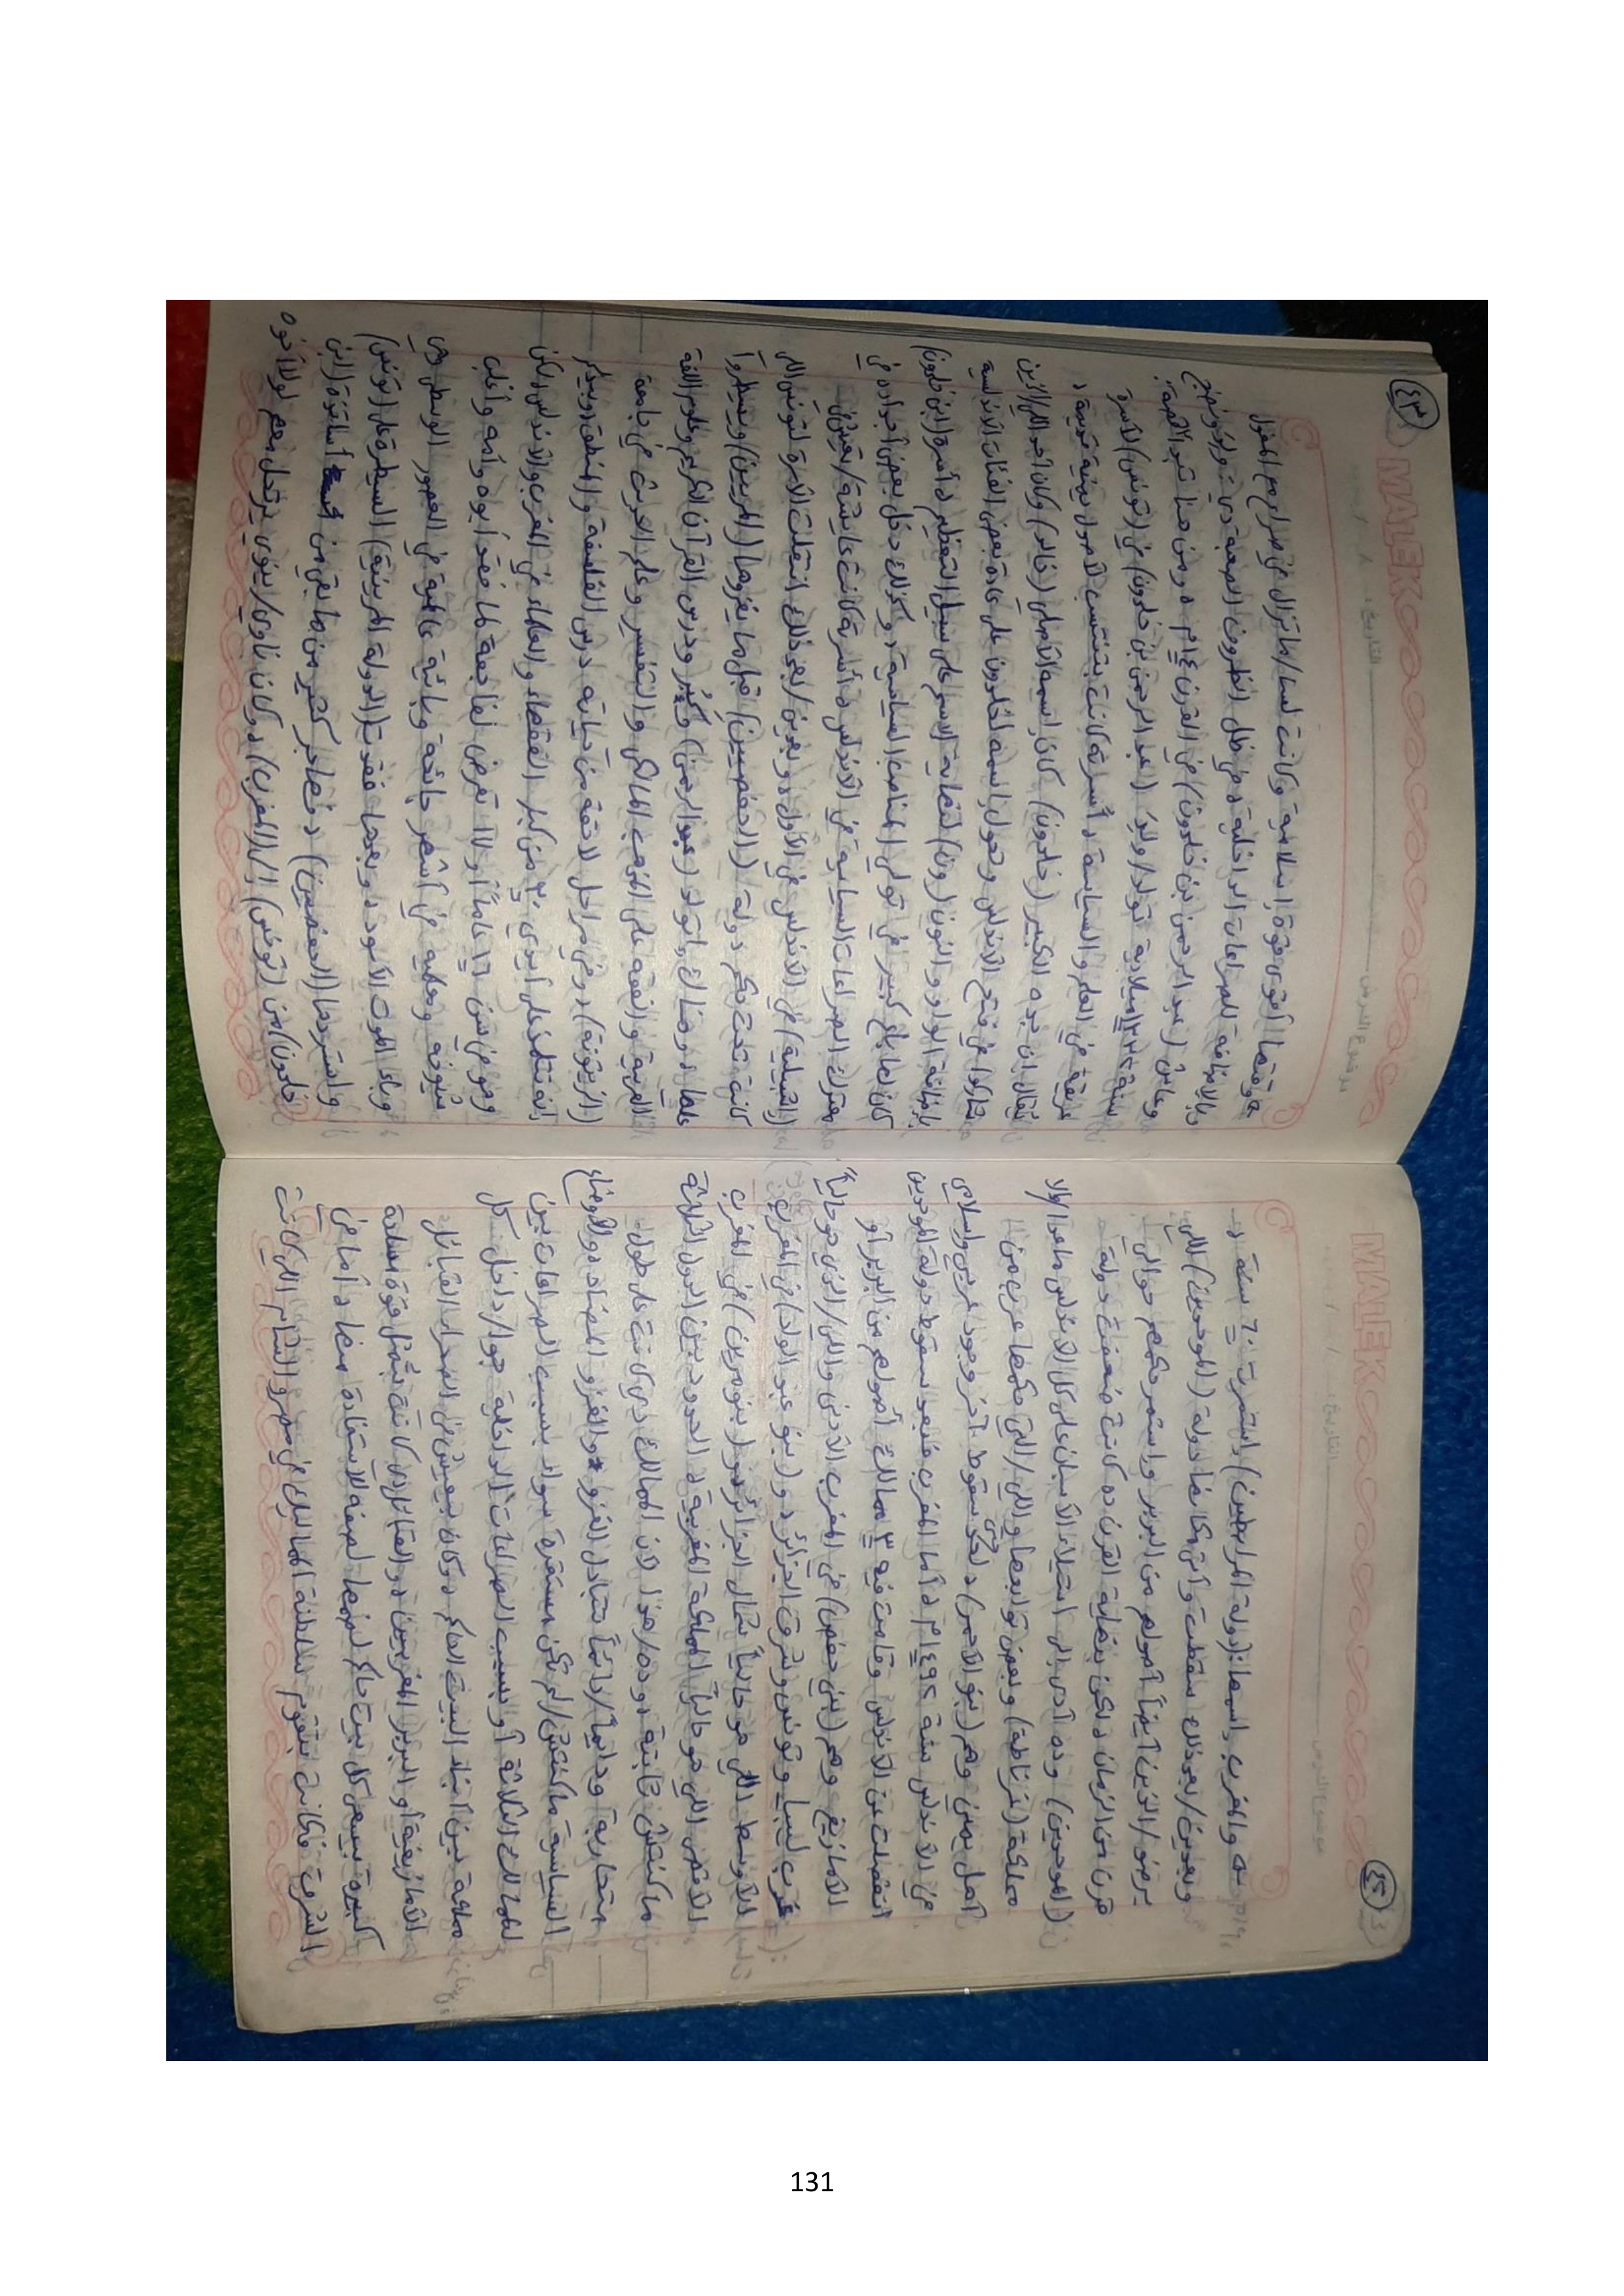 MALEK
موضوع الدرس
التاريخ: / /
٤٢
والمغرب واسمها: (دولة المرابطين) استمرت ٦٠ سنة د
وبعدين/بعد ذلك سقطت وأتى مكانها دولة (الموحدين) اللي
برضو/الذين أيضاً أصولهم من البربر واستمر حكمهم حوالي
قرن من الزمان د لكن بنهاية القرن ده كانت ضعفت دولة
(الموحدين) وده أدى إلى استيلاء الأسبان على كل الأندلس ما عدا/إلا
مملكة (غرناطة) وبعض توابعها واللي/التي حكمها عرب من
أصل يمني وهم (بنو الأحمر) د لحد/حتى سقوط آخر وجود عربي وإسلامي
في الأندلس سنة ١٤٩٢م د أما المغرب فبعد سقوط دولة الموحدين
انفصلت عن الأندلس وقامت فيه ٣ ممالك أصولهم من البربر أو
الأمازيغ وهم (بني حفص) في المغرب الأدنى واللي/الذي هو حالياً
غرب ليبيا وتونس وشرق الجزائر د و(بنو عبد الواد) في المغرب
الأوسط اللي هو حالياً شمال الجزائر د و(بنو مرين) في المغرب
الأقصى اللي هو حالياً المملكة المغربية د الحدود بين الدول الثلاثة
ما كنتش ثابتة د وده/هذا لأن الممالك دي كانت على طول
متحاربة ودايماً/دائماً تتبادل الغزو والغزو المضاد د والأوضاع
السياسية ما كنتش/لم تكن مستقرة سواء بسبب الصراعات بين
الممالك الثلاثة أو بسبب الصراعات الداخلية جوا/داخل كل
مملكة بين أبناء البيت الحاكم د وكان بيعيش في الصحراء القبائل
الأمازيغية أو البربر المغربين د والقبائل دي كانت بتمثل قوة مسلحة
كبيرة بيسعى كل بيت حاكم لضمها لصفه للاستفادة منها د أما في
الشرق فكانت بتقوم سلطنة المماليك في مصر والشام اللي كانت
MALEK
موضوع الدرس
التاريخ: / /
٤٣
وقتها أقوى قوة إسلامية وكانت لسا/ما تزال في صراع مع المغول
وبالإضافة للصراعات الداخلية د في ظل الظروف الصعبة دي
وعاش (عبد الرحمن بن خلدون) في القرن ١٤م د ومن هنا تبدأ القصة:
سنة ١٣٣٢ ميلادية تولد/ولد (عبد الرحمن بن خلدون) في (تونس) لأسرة
عريقة في العلم والسياسة د أسرته كانت بتنتسب لأصول يمنية قديمة د
يقال إن جده الكبير (خلدون) كان اسمه الأصلي (خالد) وكان أحد اللي/الذين
شاركوا في فتح الأندلس وتحول اسمه لخلدون على عادة بعض الفئات الأندلسية
بإضافة الواو والنون (ون) لنهاية الاسم على سبيل التعظيم د أسرة (ابن خلدون)
كان لها باع كبير في تولي المناصب السياسية د وكذلك دخل بعض أجداده في
معترك الصراعات السياسية في الأندلس د أسرته كانت عايشة/تعيش في
(إشبيلية) في الأندلس في الأول د وبعدين/بعد ذلك انتقلت الأسرة لتونس اللي
كانت تحت حكم دولة (الحفصيين) قبل ما يغزوها (المرينين) ويسيطروا
عليها د وهناك اتولد (عبد الرحمن) وكَبُر ودرس القرآن الكريم وعلوم اللغة
العربية والفقه على المذهب المالكي والتفسير وعلم الحديث في جامعة
(الزيتونة) د وفي مراحل لاحقة من حياته درس الفلسفة والمنطق د ويذكر
أنه تتلمذ على أيدي ٣٠ من كبار الفقهاء والعلماء في المغرب والأندلس د لكن
وهو في سن ١٦ عاماً أو ١٧ تعرض لفاجعة لما فقد أبوه وأمه وأغلب
شيوخه ومعلميه في أشهر جائحة وبائية عالمية في العصور الوسطى وهي
وباء الموت الأسود د وبعدها فقدت (الدولة المرينية) السيطرة على (تونس)
واستردها (الحفصيين) د فهاجر كتير من ما بقي من أساتذة (ابن
خلدون) من (تونس) إلى (المغرب) د وكان ناوي/ينوي يرتحل معهم لولا أخوه
131